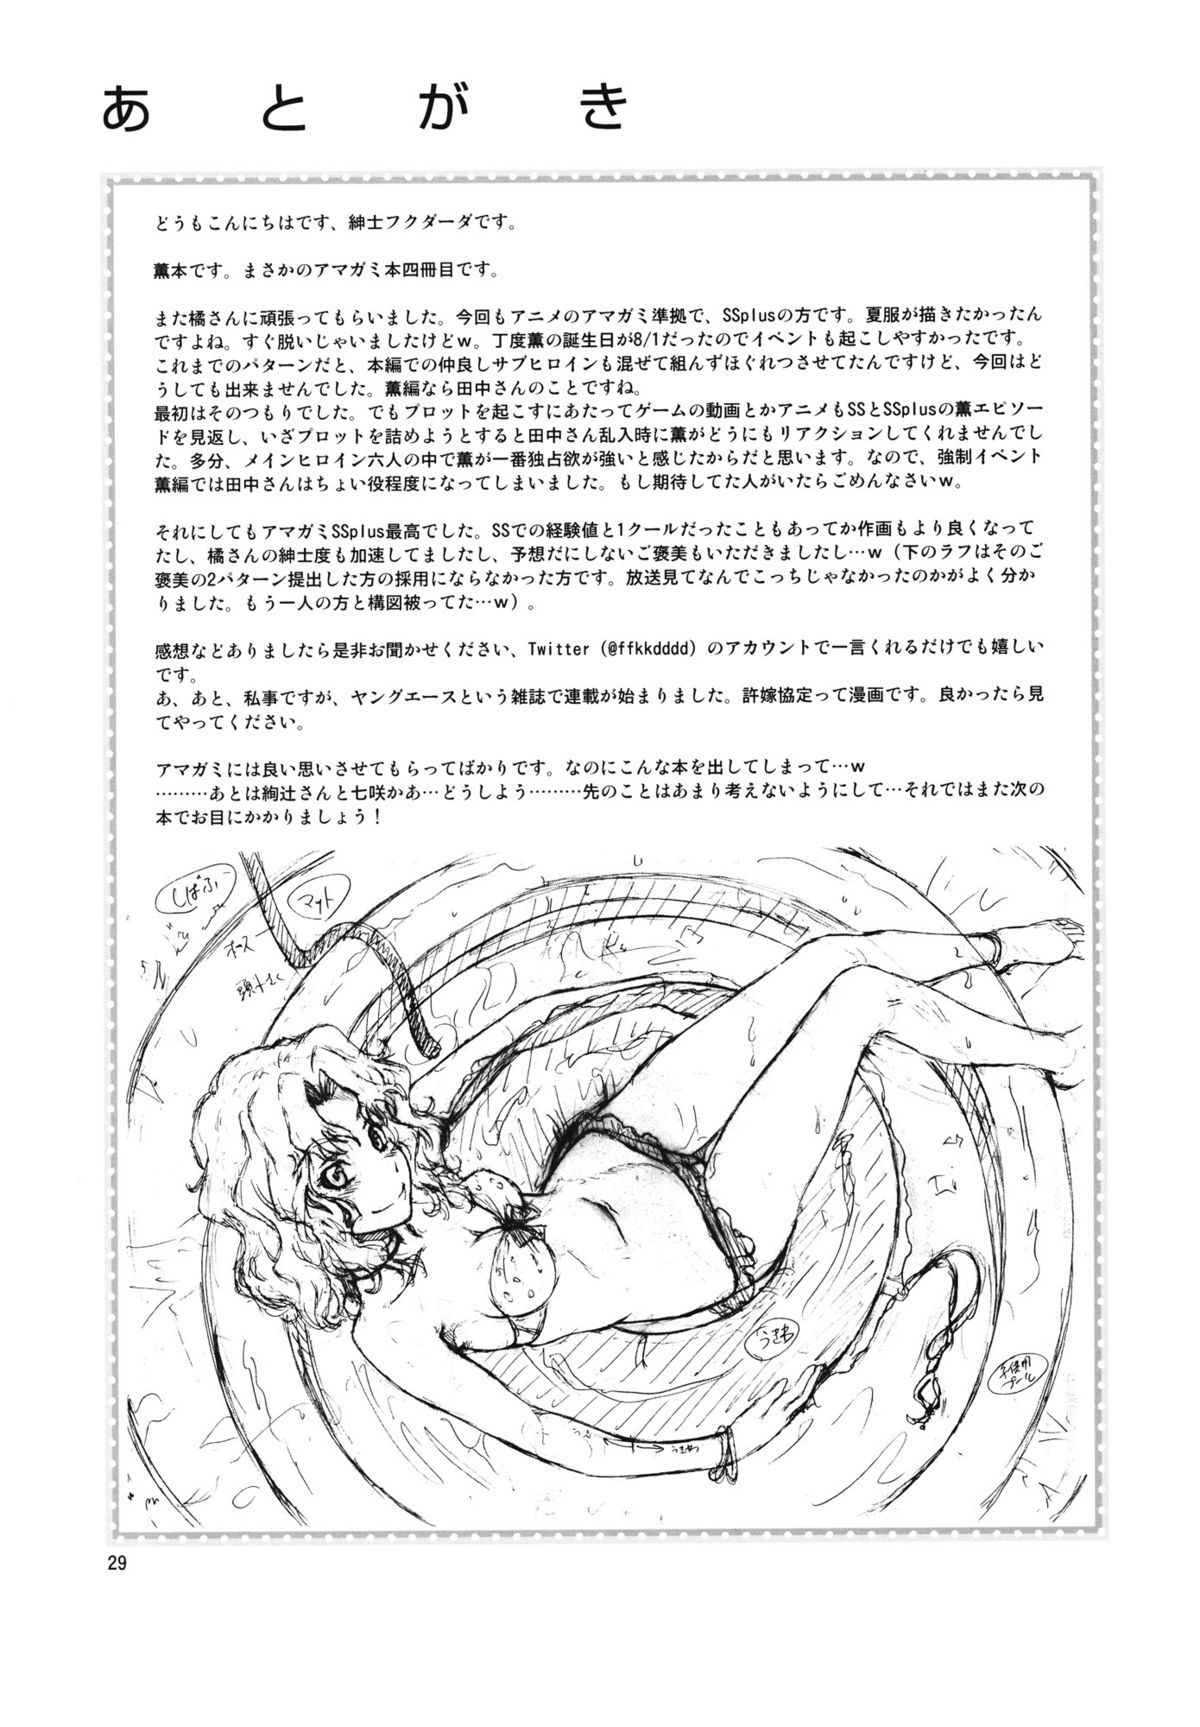 あとがき
どうもこんにちはです、紳士フクダーダです。
薫本です。まさかのアマガミ本四冊目です。
また橘さんに頑張ってもらいました。今回もアニメのアマガミ準拠で、SSplusの方です。夏服が描きたかったん
ですよね。すぐ脱いじゃいましたけどw。丁度薫の誕生日が8/1だったのでイベントも起こしやすかったです。
これまでのパターンだと、本編での仲良しサブヒロインも混ぜて組んずほぐれつさせてたんですけど、今回はど
うしても出来ませんでした。薫編なら田中さんのことですね。
最初はそのつもりでした。でもプロットを起こすにあたってゲームの動画とかアニメもSSとSSplusの薫エピソー
ドを見返し、いざプロットを詰めようとすると田中さん乱入時に薫がどうにもリアクションしてくれませんでし
た。多分、メインヒロイン六人の中で薫が一番独占欲が強いと感じたからだと思います。なので、強制イベント
薫編では田中さんはちょい役程度になってしまいました。もし期待してた人がいたらごめんなさいw。
それにしてもアマガミSSplus最高でした。SSでの経験値と1クールだったこともあってか作画もより良くなって
たし、橘さんの紳士度も加速してましたし、予想だにしないご褒美もいただきましたし…w（下のラフはそのご
褒美の2パターン提出した方の採用にならなかった方です。放送見てなんでこっちじゃなかったのかがよく分か
りました。もう一人の方と構図被ってた…w）。
感想などありましたら是非お聞かせください、Twitter（@ffkkdddd）のアカウントで一言くれるだけでも嬉しい
です。
あ、あと、私事ですが、ヤングエースという雑誌で連載が始まりました。許嫁協定って漫画です。良かったら見
てやってください。
アマガミには良い思いさせてもらってばかりです。なのにこんな本を出してしまって…w
………あとは絢辻さんと七咲かあ…どうしよう………先のことはあまり考えないようにして…それではまた次の
本でお目にかかりましょう！
しばふ
マット
ホース
うきわ
子供用
プール
うきわ
29